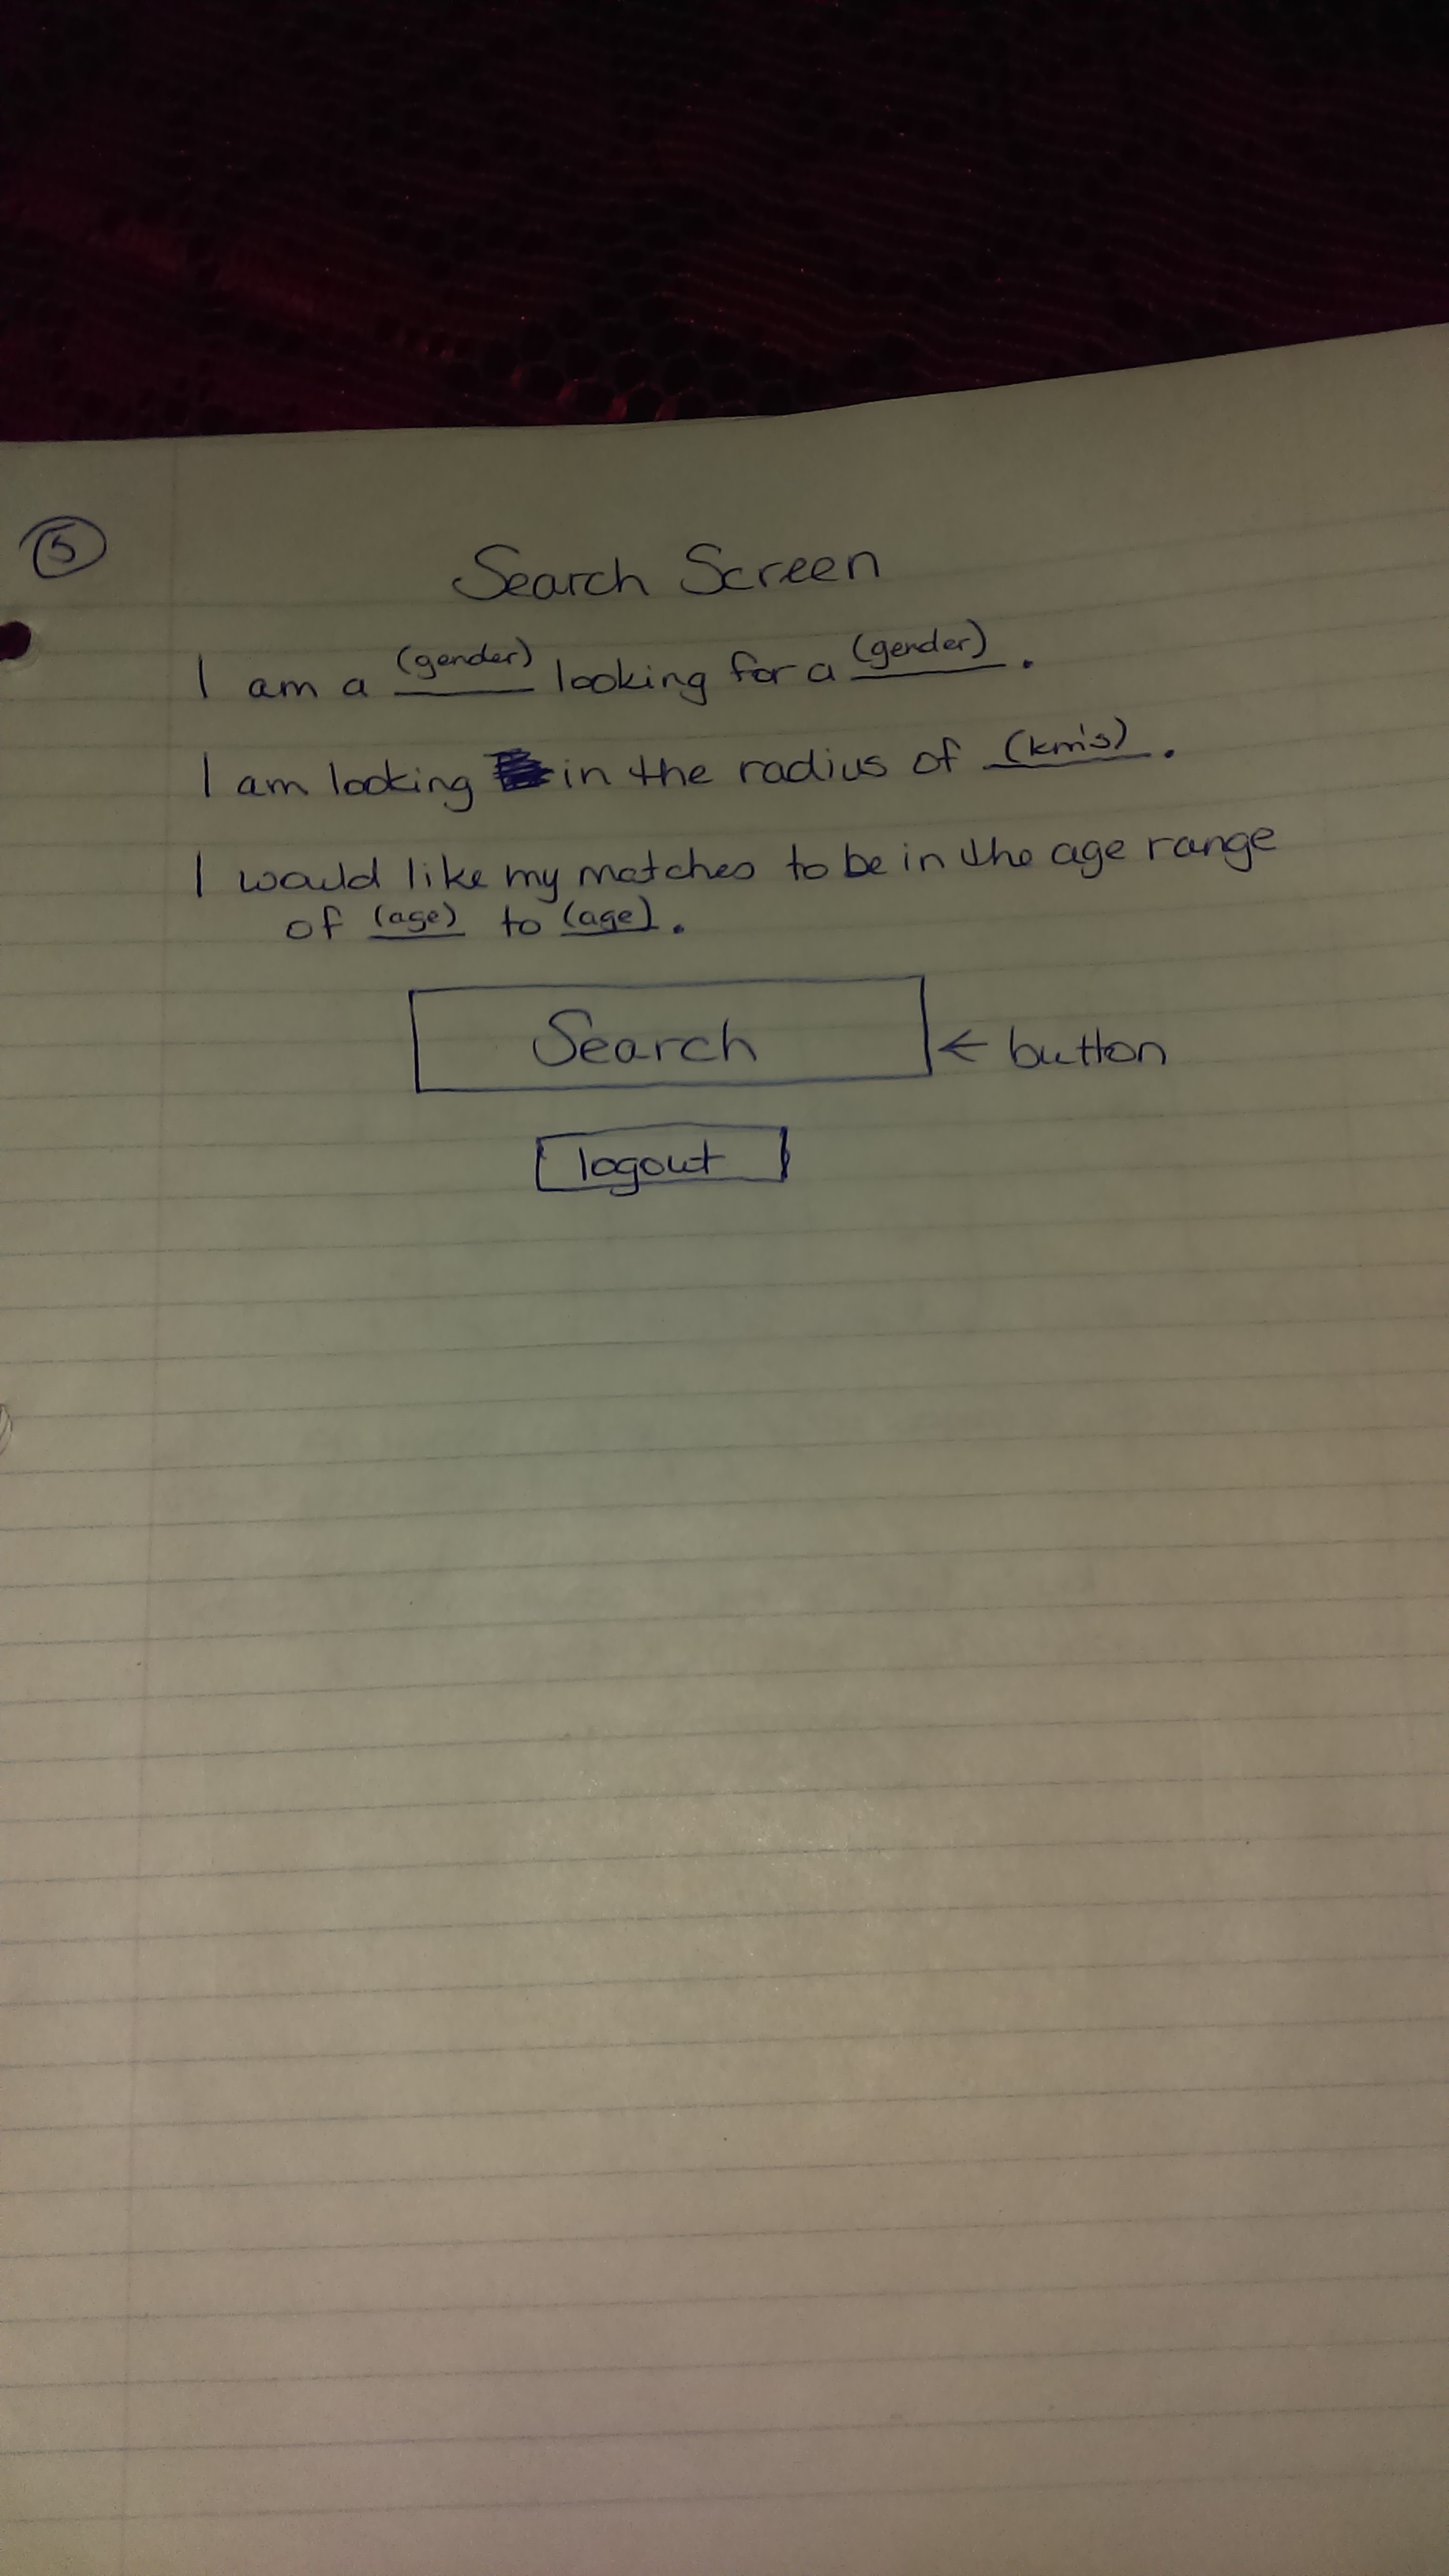 5
Search Screen
I am a (gender) looking for a (gender).
I am looking in the radius of (km's).
I would like my matches to be in the age range
of (age) to (age).
Search ← button
logout